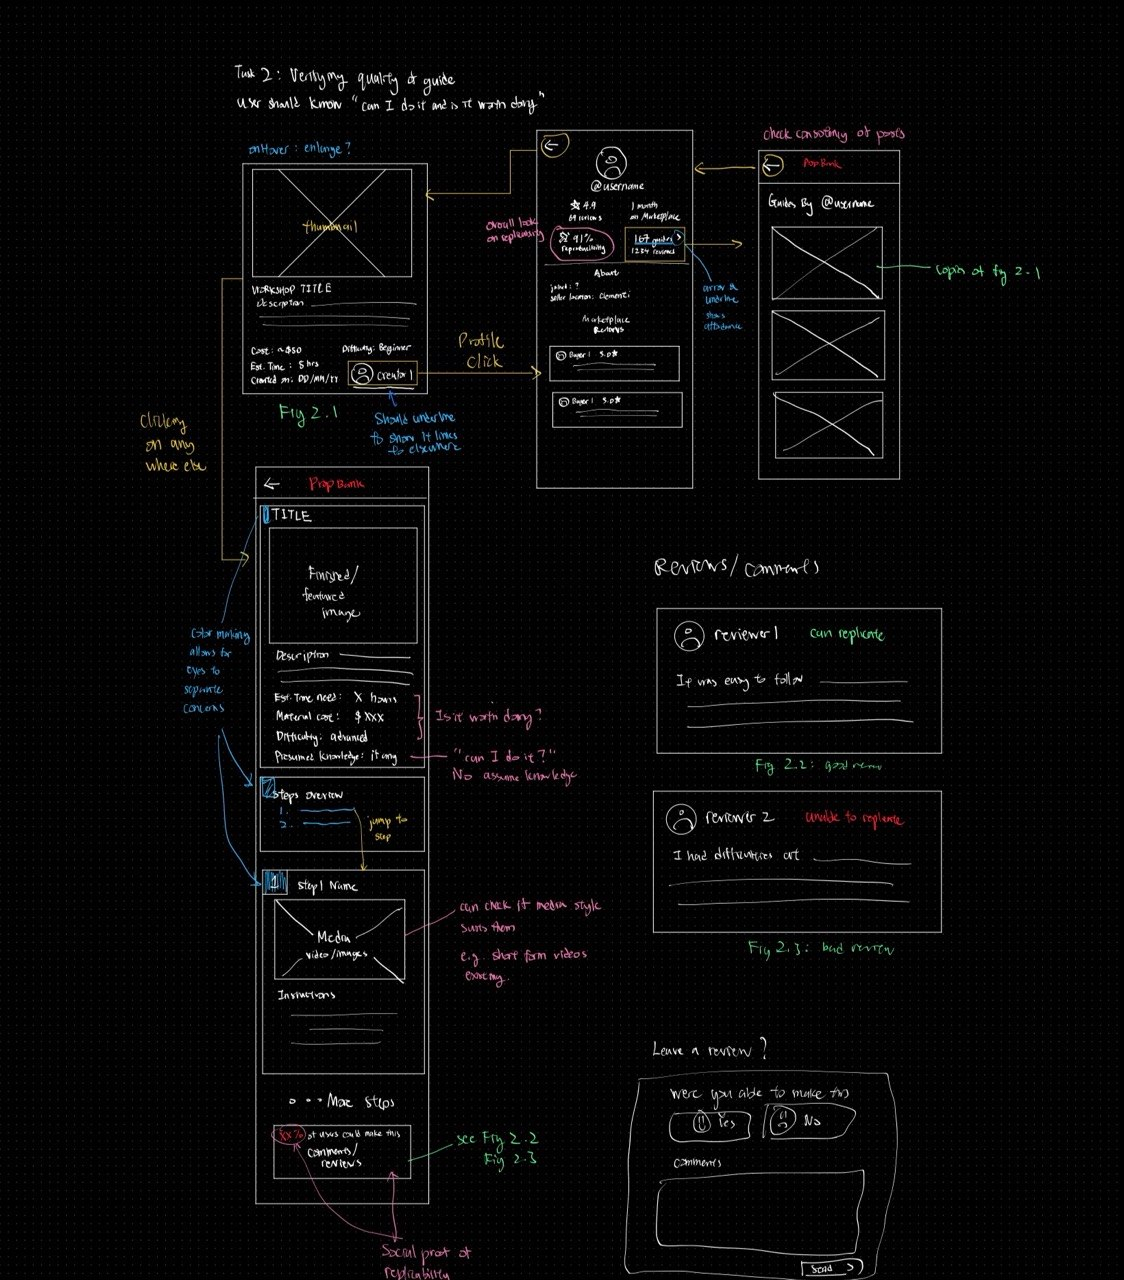 Task 2: Verifying quality of guide
User should know "can I do it and is it worth doing"
onHover: enlarge?
thumbnail
WORKSHOP TITLE
Description
Cost: ~$50
Difficulty: Beginner
Est. Time: 5 hrs
Created on: DD/MM/YY
Creator 1
Fig 2.1
Should underline
to show it links
to elsewhere
Profile
Click
Clicking
on any
where else
@username
4.9
69 reviews
1 month
on Marketplace
overall look
on replicability
91%
reproducibility
167 guides >
1234 reviews
About
joined: ?
seller location: Clementi
Marketplace
Reviews
Buyer 1 5.0★
Buyer 1 5.0★
arrow &
underline
shows
affordance
check consistency of posts
PropBank
Guides By @username
copies of fig 2.1
PropBank
TITLE
Finished/
featured
image
Description
Est. Time need: X hours
Material cost: $ XXX
Difficulty: advanced
Presumed knowledge: if any
Is it worth doing?
"can I do it?"
No assume knowledge
color making
allows for
eyes to
separate
concerns
Steps overview
1.
2.
jump to
step
1
Step 1 Name
Media
video/images
Instructions
can check if media style
suits them
e.g. short form videos
existing.
More steps
XX% of users could make this
comments/
reviews
see Fig 2.2
Fig 2.3
Social proof of
replicability
Reviews/comments
reviewer 1
can replicate
It was easy to follow
Fig 2.2: good review
reviewer 2
unable to replicate
I had difficulties at
Fig 2.3: bad review
Leave a review?
Were you able to make this
Yes
No
Comments
Send >